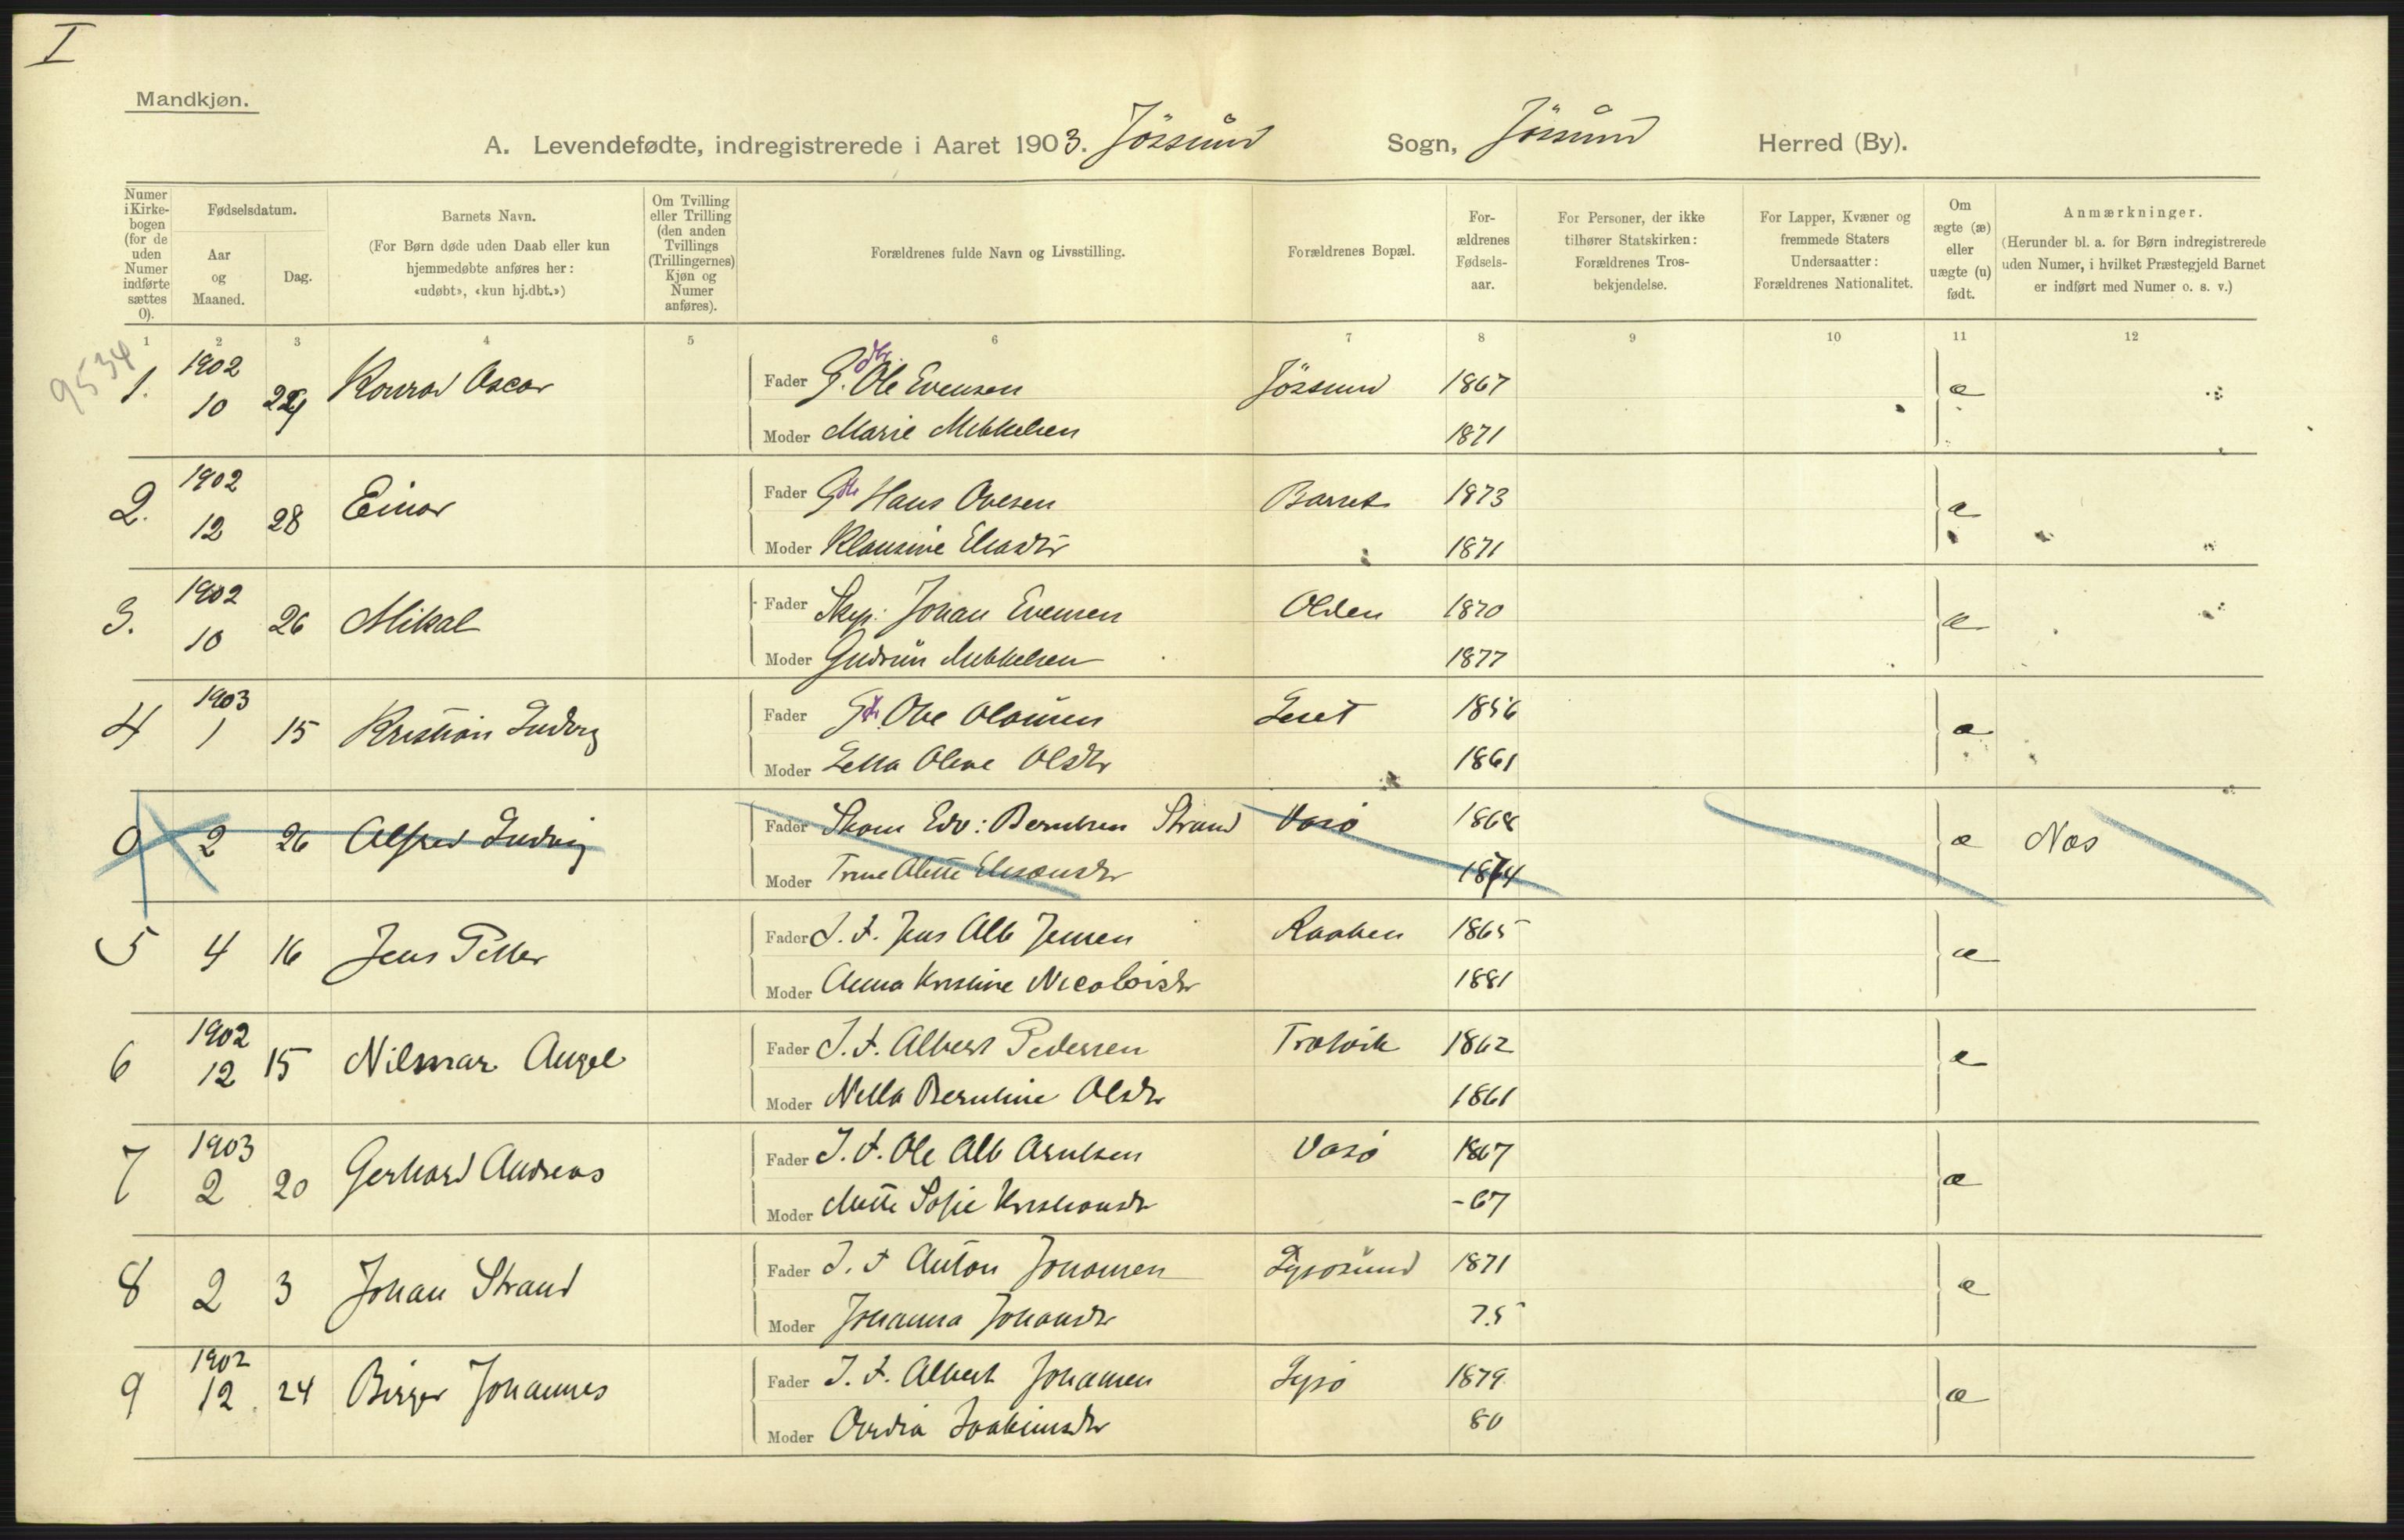 I
Mandkjøn.
A. Levendefødte, indregistrerede i Aaret 1903. Jössund Sogn, Jössund Herred (By).
Numer i Kirkebogen (for de uden Numer indførte sættes 0).
Fødselsdatum.
Aar og Maaned.
Dag.
Barnets Navn.
(For Børn døde uden Daab eller kun hjemmedøbte anføres her: «udøbt», «kun hj.dbt.»)
Om Tvilling eller Trilling (den anden Tvillings (Trillingernes) Kjøn og Numer anføres).
Forældrenes fulde Navn og Livsstilling.
Forældrenes Bopæl.
For-ældrenes Fødsels-aar.
For Personer, der ikke tilhører Statskirken: Forældrenes Tros-bekjendelse.
For Lapper, Kvæner og fremmede Staters Undersaatter: Forældrenes Nationalitet.
Om ægte (æ) eller uægte (u) født.
Anmærkninger.
(Herunder bl. a. for Børn indregistrerede uden Numer, i hvilket Præstegjeld Barnet er indført med Numer o. s. v.)
1 2 3 4 5 6 7 8 9 10 11 12
9534
1. 1902 10 Konrad Oscar Fader G. Ole Evensen Jössund 1867 æ
Moder Marie Mikkelsen 1871
2. 1902 12 28 Einar Fader G Hans Ovesen Barset 1873 æ
Moder Klausine Eliasdtr 1871
3. 1902 10 26 Mikal Fader Skyp. Johan Evensen Olden 1870 æ
Moder Gudrun Mikkelsen 1877
4 1903 1 15 Kristian Ludvig Fader G Ove Olausen Leset 1856 æ
Moder Olava Olsdtr 1861
0 2 26 Alfred Ludvig Fader Skom Edv: Berntsen Strand Vasø 1868 æ Næs
Moder Trine Alette 1874
5 4 16 Jens Petter Fader I. F. Jens Alb Jensen Raaken 1865 æ
Moder Anna Kristine Nicolaisdtr 1881
6 1902 12 15 Hilmar Angel Fader I. F. Albert Pedersen 1862 æ
Moder Berntine Olsdtr 1861
7 1903 2 20 Gerhard Andreas Fader I. F. Ole Alb Arntsen Vasø 1867 æ
Moder Mette Sofie Kristiansdtr -67
8 2 3 Johan Strand Fader I. F Anton Johansen Lysøsund 1871 æ
Moder Johanna Johansdtr 75
9 1902 12 24 Birger Johannes Fader I. F. Albert Johansen Lysø 1879 æ
Moder Ovedia Joakimsdtr 80